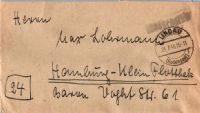 Herrn
Max Lohrmann
Hamburg-Klein Flottbek
Baron Voght Str. 61
24
LINDAU